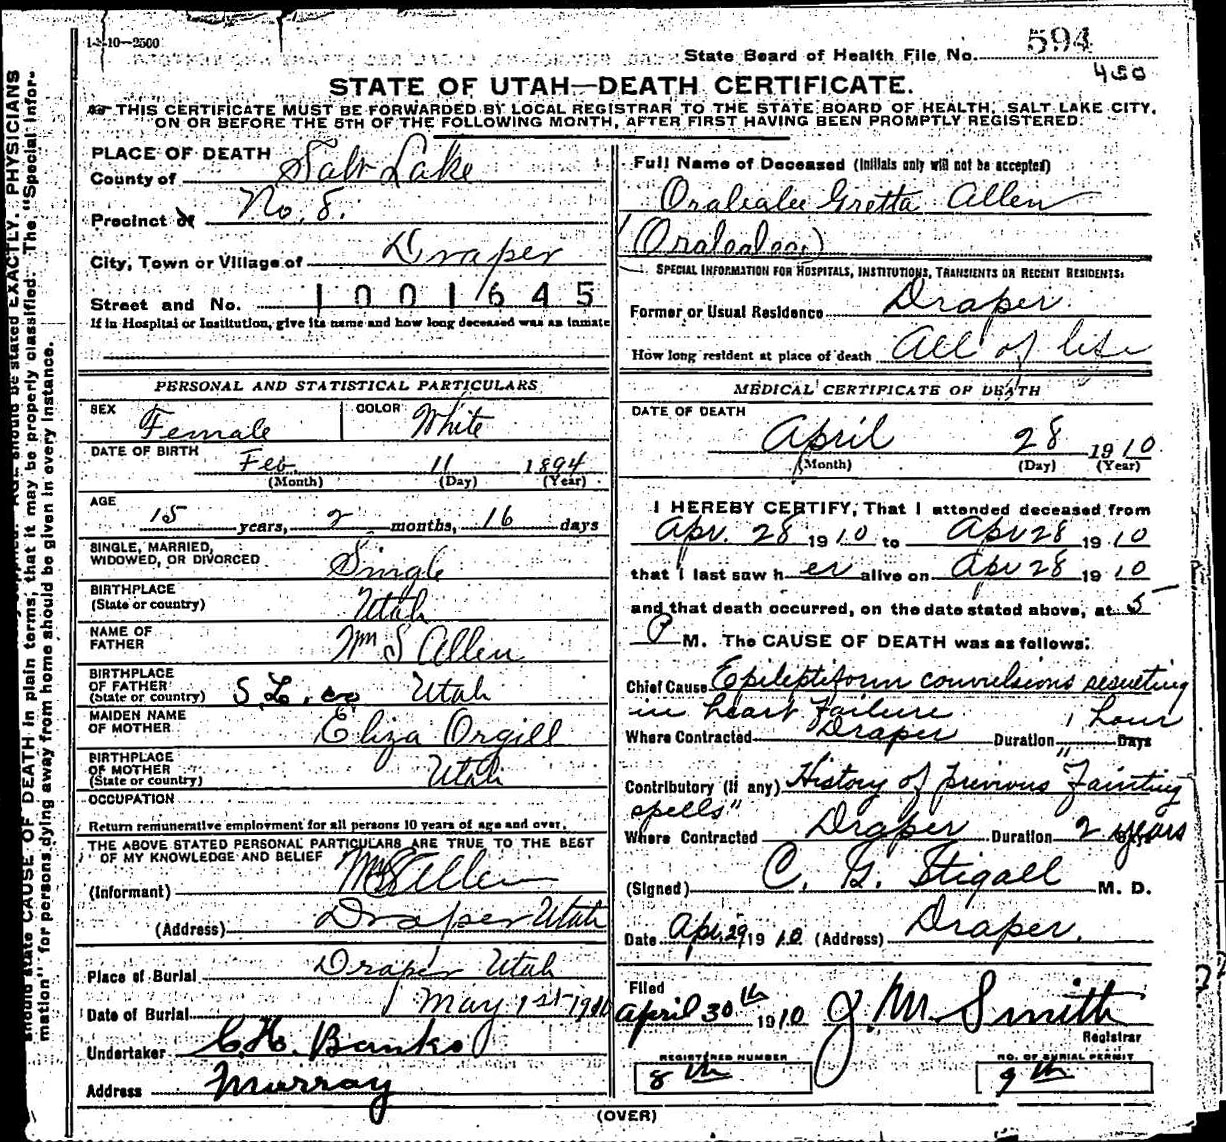 1-2-10—2500
State Board of Health File No. 594
450
STATE OF UTAH—DEATH CERTIFICATE.
THIS CERTIFICATE MUST BE FORWARDED BY LOCAL REGISTRAR TO THE STATE BOARD OF HEALTH, SALT LAKE CITY,
ON OR BEFORE THE 5TH OF THE FOLLOWING MONTH, AFTER FIRST HAVING BEEN PROMPTLY REGISTERED.
PLACE OF DEATH
County of Salt Lake
Precinct of No. 8.
City, Town or Village of Draper
Street and No. 1001645
If in Hospital or Institution, give its name and how long deceased was an inmate
PERSONAL AND STATISTICAL PARTICULARS
SEX Female
COLOR White
DATE OF BIRTH
Feb. 11 1894
(Month) (Day) (Year)
AGE
15 years, 2 months, 16 days
SINGLE, MARRIED,
WIDOWED, OR DIVORCED Single
BIRTHPLACE
(State or country) Utah
NAME OF
FATHER Wm S Allen
BIRTHPLACE
OF FATHER
(State or country) S.L. co Utah
MAIDEN NAME
OF MOTHER Eliza Orgill
BIRTHPLACE
OF MOTHER
(State or country) Utah
OCCUPATION
Return remunerative employment for all persons 10 years of age and over.
THE ABOVE STATED PERSONAL PARTICULARS ARE TRUE TO THE BEST
OF MY KNOWLEDGE AND BELIEF
(Informant) Wm S Allen
(Address) Draper Utah
Place of Burial Draper Utah
Date of Burial May 1st 1910
Undertaker C.H. Banks
Address Murray
Full Name of Deceased (Initials only will not be accepted)
Oralealee Gretta Allen
(Oralealee)
SPECIAL INFORMATION FOR HOSPITALS, INSTITUTIONS, TRANSIENTS OR RECENT RESIDENTS:
Former or Usual Residence Draper.
How long resident at place of death All of life
MEDICAL CERTIFICATE OF DEATH
DATE OF DEATH
April 28 1910
(Month) (Day) (Year)
I HEREBY CERTIFY, That I attended deceased from
Apr. 28 1910 to Apr 28 1910
that I last saw her alive on Apr 28 1910
and that death occurred, on the date stated above, at 5
P M. The CAUSE OF DEATH was as follows:
Chief Cause Epileptiform convulsions resulting
in heart failure 1 hour
Where Contracted Draper Duration Days
Contributory (if any) History of previous "Fainting
spells"
Where Contracted Draper Duration 2 years
(Signed) C. G. Stigall M. D.
Date Apr. 29 1910 (Address) Draper.
Filed
April 30th 1910 J. M. Smith
Registrar
REGISTERED NUMBER
8th
NO. OF BURIAL PERMIT
9th
(OVER)
AGE should be stated EXACTLY. PHYSICIANS
should state CAUSE OF DEATH in plain terms, that it may be properly classified. The "Special Infor-
mation" for persons dying away from home should be given in every instance.